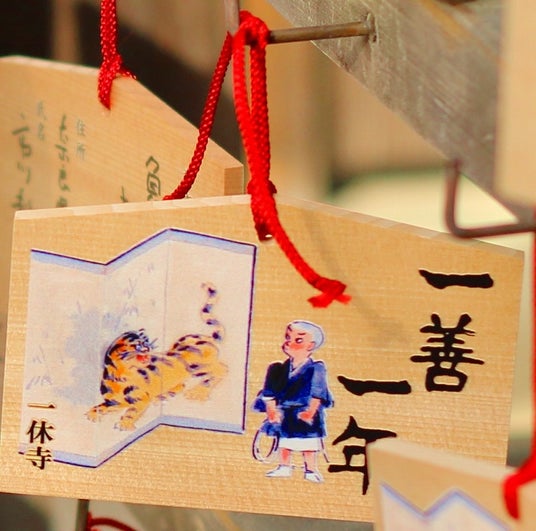 一善
一年
一休寺
住所
氏名